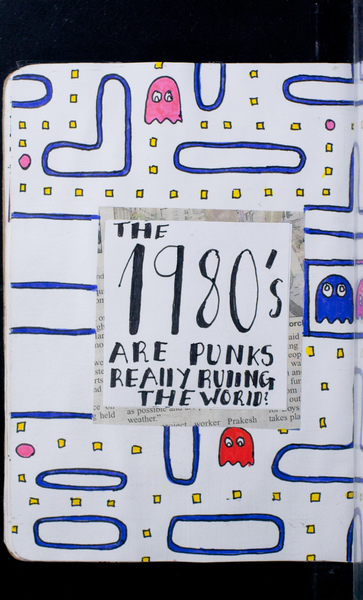 THE
1980's
ARE PUNKS
REAllY RUlING
THE WORlD?
held
as possible and
weather."
worker Prakesh
takes pla